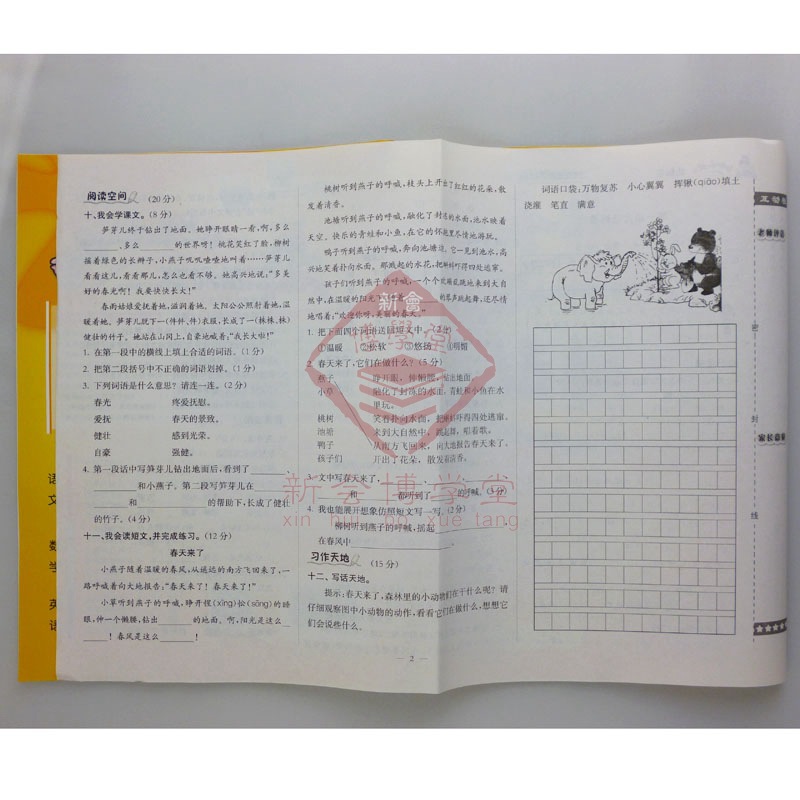 阅读空间 (20分)
十、我会学课文。(8分)
笋芽儿终于钻出了地面。她睁开眼睛一看,啊,多么
______、多么______的世界呀!桃花笑红了脸,柳树
摇着绿色的长辫子,小燕子叽叽喳喳地叫着……笋芽儿
看看这儿,看看那儿,怎么也看不够。她高兴地说:“多美
好的春光啊!我要快快长大!”
春雨姑娘爱抚着她,滋润着她。太阳公公照射着她,温
暖着她。笋芽儿脱下一(件件、件)衣服,长成了一(株株、株)
健壮的竹子。她站在山冈上,自豪地喊着:“我长大啦!”
1. 在第一段中的横线上填上合适的词语。(1分)
2. 把第二段括号中不正确的词语划掉。(1分)
3. 下列词语是什么意思?请连一连。(2分)
春光 疼爱抚慰。
爱抚 春天的景致。
健壮 感到光荣。
自豪 强健。
4. 第一段话中写笋芽儿钻出地面后,看到了______、
______和小燕子。第二段写笋芽儿在______
______和______的帮助下,长成了健壮
的竹子。(4分)
十一、我会读短文,并完成练习。(12分)
春天来了
小燕子随着温暖的春风,从遥远的南方飞回来了,一
路呼唤着向大地报告:“春天来了!春天来了!”
小草听到燕子的呼喊,睁开惺(xīng)忪(sōng)的睡
眼,伸一个懒腰,钻出______的地面。啊,阳光是这么__
____!春风是这么______!
桃树听到燕子的呼喊,枝头上开出了红红的花朵,散
发着清香。
池塘听到了燕子的呼喊,融化了封冻的水面,池水映着
天空。快乐的青蛙和小鱼,在它的怀抱里尽情地游玩。
鸭子听到燕子的呼喊,奔向池塘边,它一见到池水,高
兴地笑着扑向水面。那溅起的水花,把蝌蚪吓得四处逃窜。
孩子们听到燕子的呼喊,一个个欢蹦乱跳地来到大自
然中,在温暖的阳光下伴着______的琴声跳起舞,还尽情
地唱着:“欢迎你呀,美丽的春天。”
1. 把下面四个词语送回短文中。(2分)
①温暖 ②松软 ③悠扬 ④明媚
2. 春天来了,它们在做什么?(5分)
燕子 睁开眼,伸懒腰,钻出地面。
小草 融化了封冻的水面,青蛙和小鱼在水
里玩。
桃树 笑着扑向水面,把蝌蚪吓得四处逃窜。
池塘 来到大自然中,跳起舞,唱着歌。
鸭子 从南方飞回来,向大地报告春天来了。
孩子们 开出了花朵,散发着清香。
3. 文中写春天来了,______、______、______、
______和______都听到了______的呼喊。(3分)
4. 我也能展开想象仿照短文写一写。(2分)
柳树听到燕子的呼喊,摇起______
在春风中______。
习作天地 (15分)
十二、写话天地。
提示:春天来了,森林里的小动物们在干什么呢?请
仔细观察图中小动物的动作,看看它们在做什么,想想它
们会说些什么。
— 2 —
词语口袋:万物复苏 小心翼翼 挥锹(qiāo)填土
浇灌 笔直 满意
老师评语
家长意见
密
封
线
语
文
数
学
英
语
新會
博學堂
新会博学堂
xin hui bo xue tang